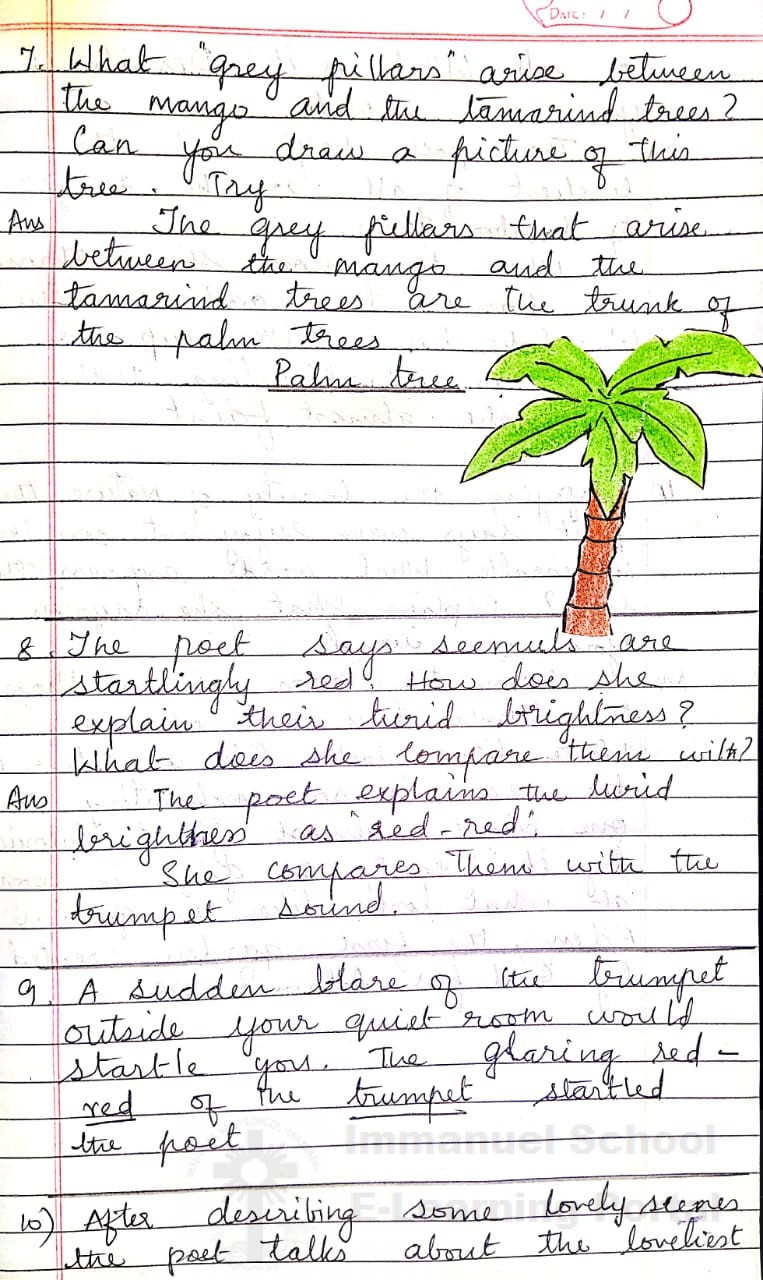 DATE: / /
7. What "grey pillars" arise between
the mango and the tamarind trees?
Can you draw a picture of this
tree. Try
Ans The grey pillars that arise
between the mango and the
tamarind trees are the trunk of
the palm trees
Palm tree
8. The poet says seemuls are
startlingly red. How does she
explain their lurid brightness?
What does she compare them with?
Ans The poet explains the lurid
brightness as "red-red".
She compares them with the
trumpet sound.
9. A sudden blare of the trumpet
outside your quiet room would
startle you. The glaring red-
red of the trumpet startled
the poet
Immanuel School
E-Learning Portal
10) After describing some lovely scenes
the poet talks about the loveliest